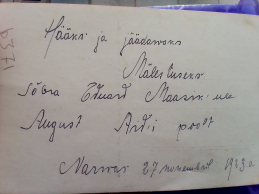 Hääks ja jäädawaks
Mälestuseks
Sõbra Eduard Maasin-ule
August Ard-i poolt
Narwas 27 novembril 1923.a.
6371